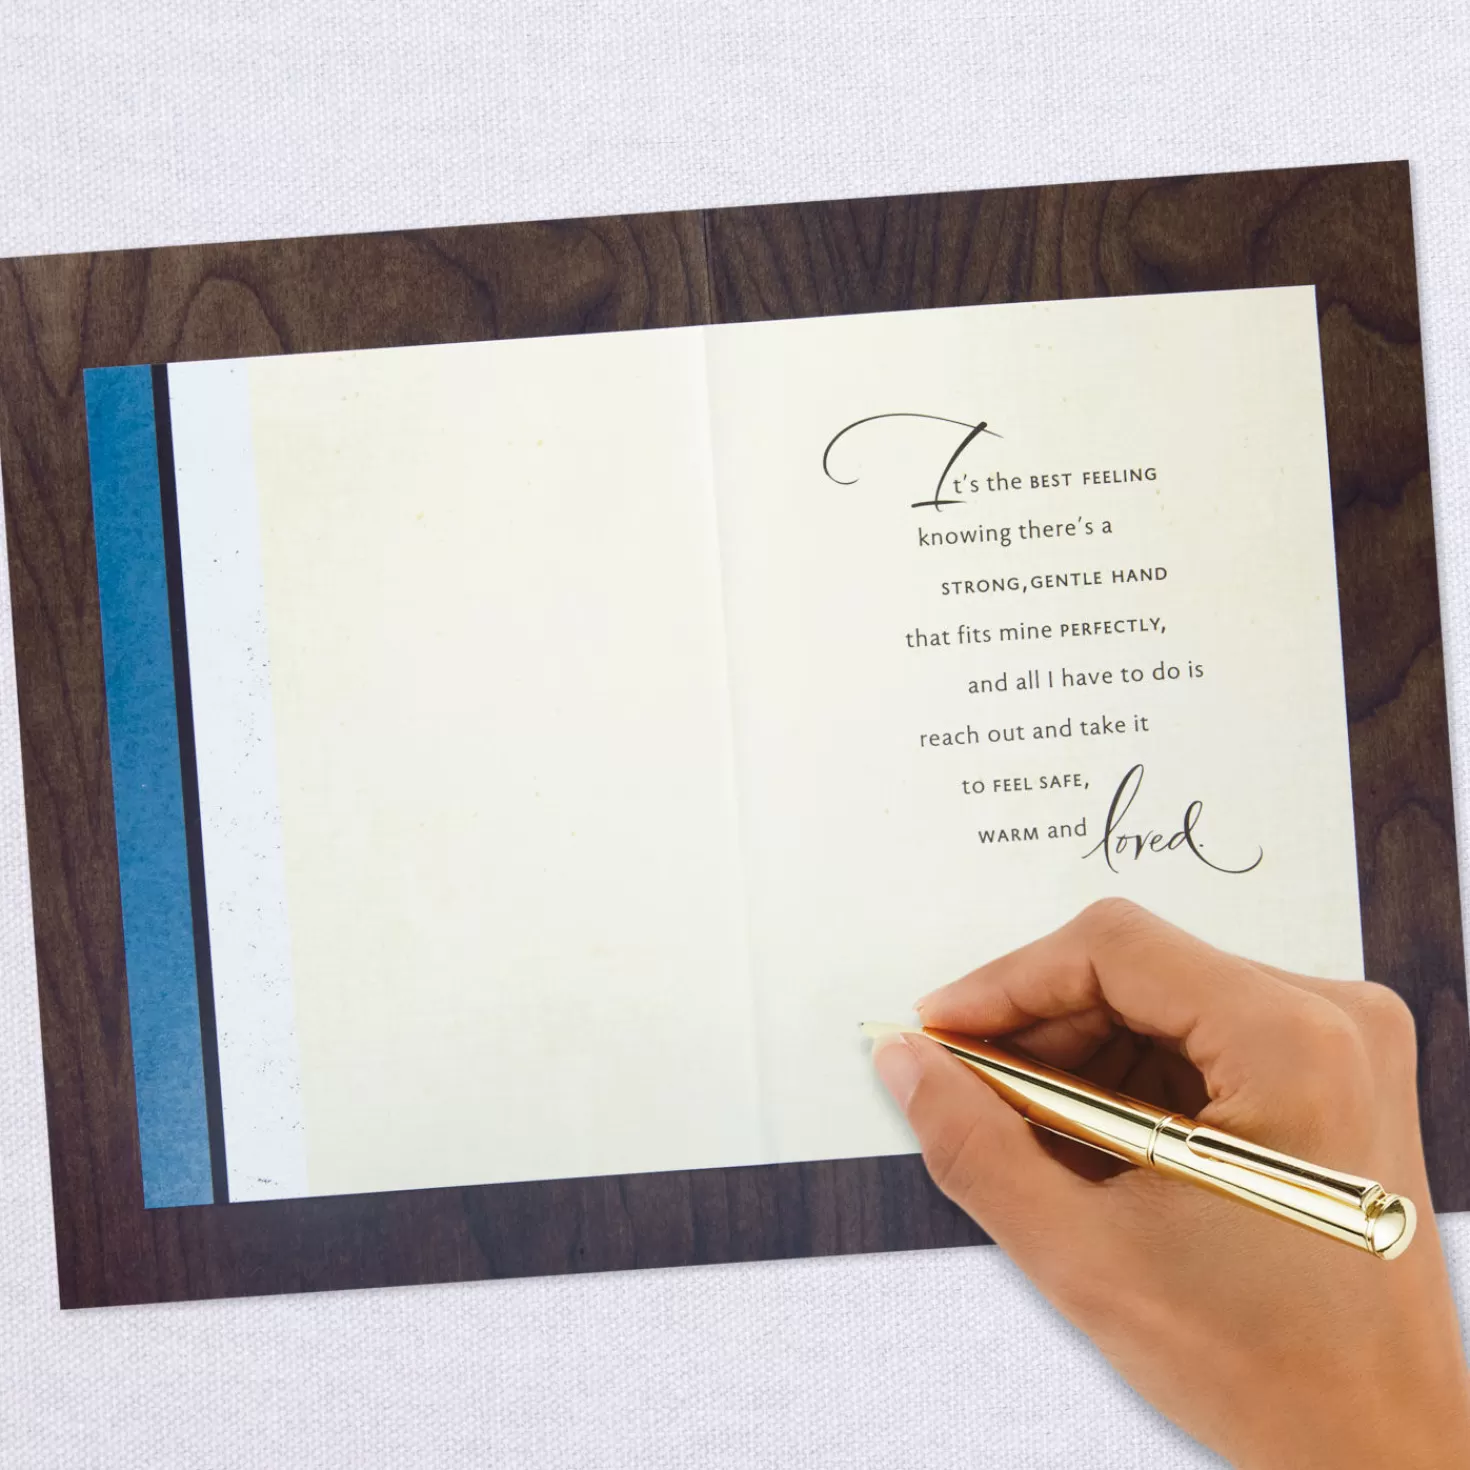 It's the BEST FEELING
knowing there's a
STRONG, GENTLE HAND
that fits mine PERFECTLY,
and all I have to do is
reach out and take it
to FEEL SAFE,
WARM and loved.